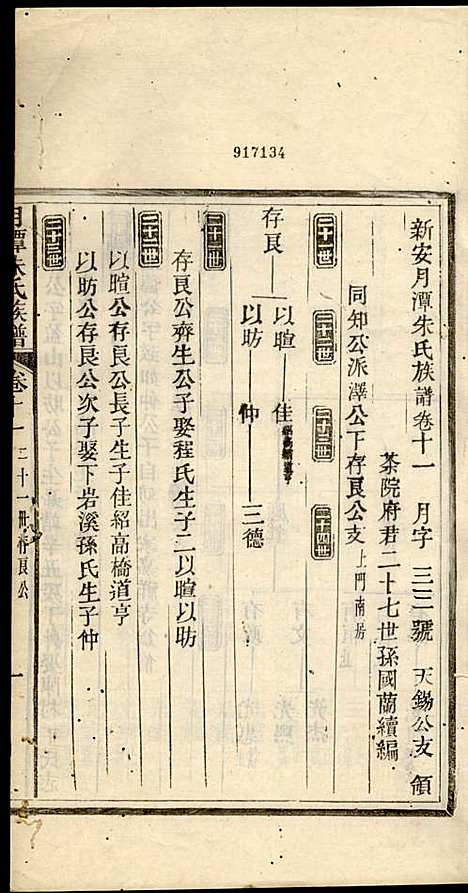 917134
新安月潭朱氏族譜卷十一 月字 三三號 天錫公支 領
茶院府君二十七世孫國蘭續編
同知公派澤公下存良公支 上門南房
二十一世 二十二世 二十三世 二十四世
存良 以暄 佳
以昉 仲 三德
二十一世
存良公齊生公子娶程氏生子二以暄以昉
二十二世
以暄公存良公長子生子佳紹高橋道亨
以昉公存良公次子娶下岩溪孫氏生子仲
二十三世
月潭朱氏族譜 卷十一 二十一世存良公 一